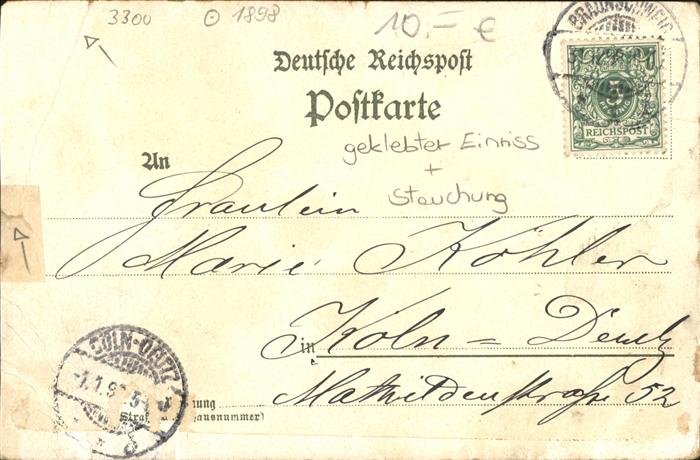 3300 ⊙ 1898 10,- €
BRAUNSCHWEIG
Deutsche Reichspost
Postkarte
5
REICHSPOST
geklebter Einriss
+
Stauchung
An
Fräulein
Marie Köhler
in Köln = Deutz
Mathildenstraße 52
CÖLN-DEUTZ